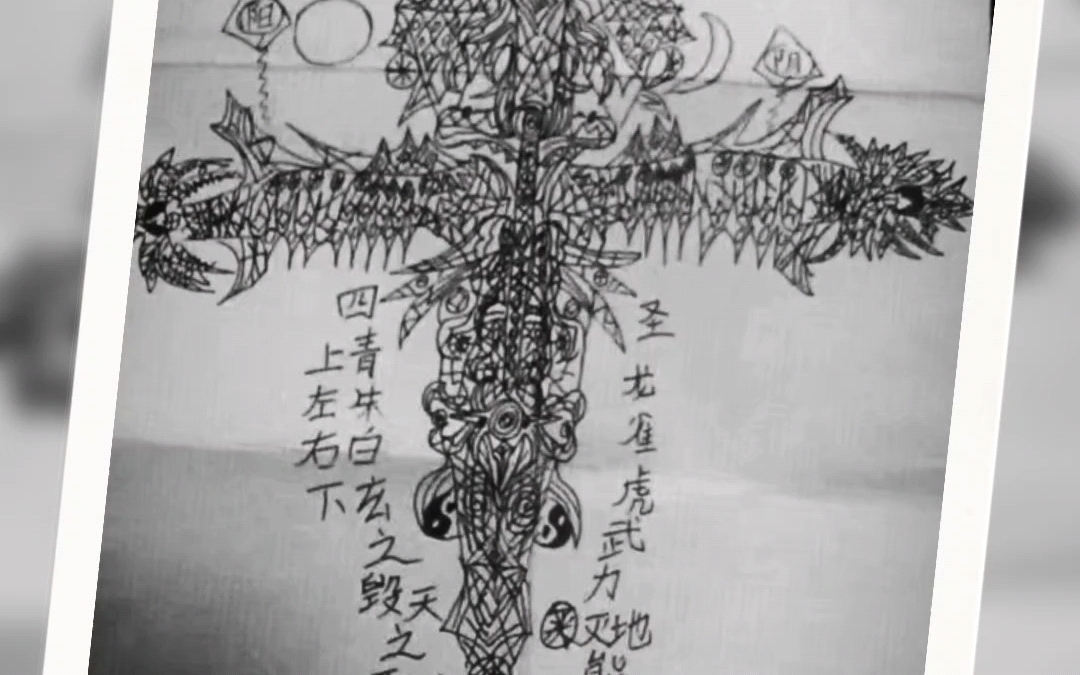 阳 阴
四 圣
上青 龙
左朱 雀
右白 虎
下玄 武
之 力
毁天 灭地
之